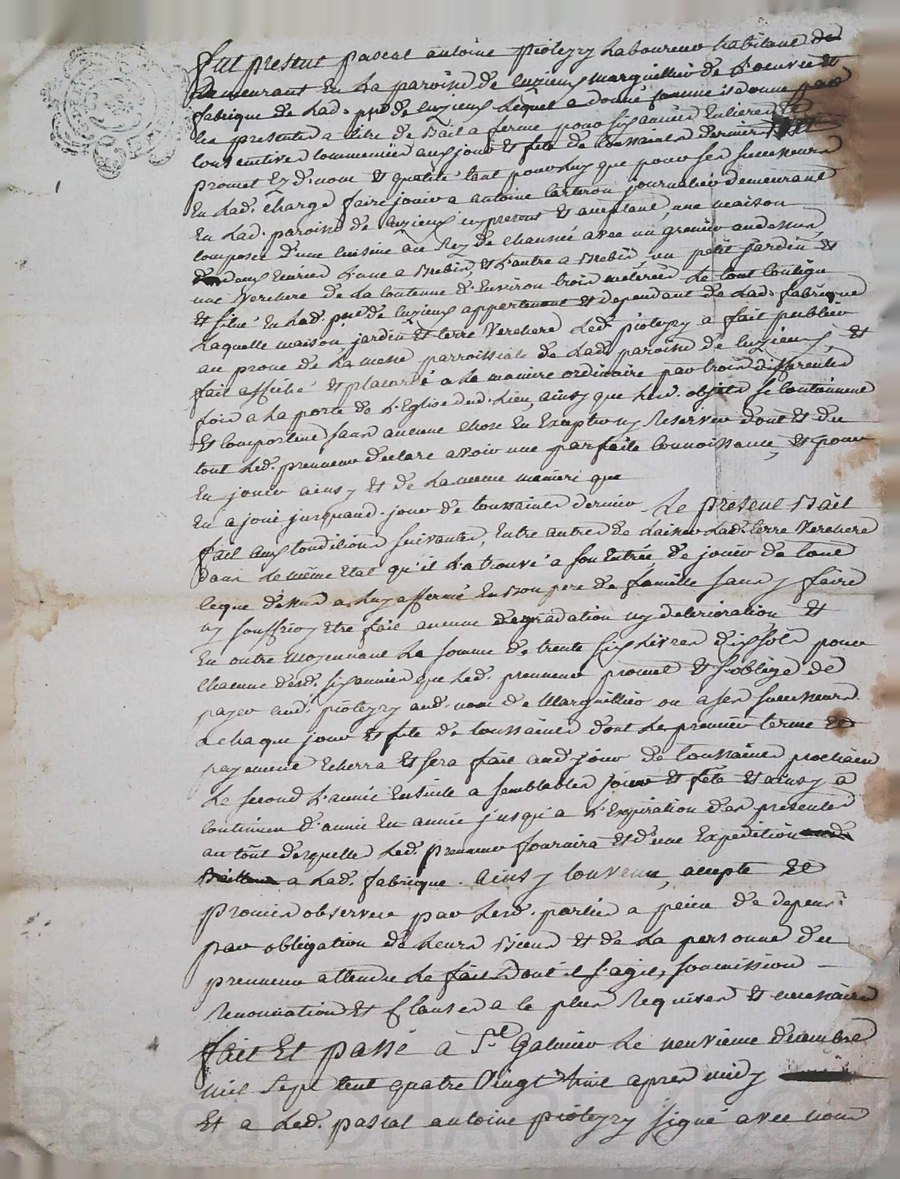 fut present pascal antoine pioteyry laboureur habitant de
demeurant en la paroisse de luzieux marguillier de l'oeuvre et
fabrique de lad. psse de luzieux lequel a donné comme il donne par
les presentes a titre de bail a ferme pour six années entieres et
consecutives commencées aux jour et fete de toussaints dernier
promet esd. nom et qualité tant pour luy que pour ses successeurs
en lad. charge faire jouir a antoine journalier demeurant
en lad. paroisse de luzieux cy present et acceptant, une maison
composée d'une cuisine au rez de chaussée avec un grenier audessus,
deux ecuries l'une a brebis, et l'autre a brebis, un petit jardin et
une verchere de la contenue d'environ trois meterées le tout contigu
et situé en lad. psse de luzieux appartenant et dependant de lad. fabrique
laquelle maison jardin et terre verchere led. pioteyry a fait publier
au prone de la messe parroissiale de lad. paroisse de luzieux, et
fait affiché et placardé a la maniere ordinaire par trois differentes
fois a la porte de l'Eglise dud. lieu, ainsy que lesd. objets se contiennent
et comportent sans aucune chose en excepter ny reserver dont et du
tout led. preneur declare avoir une parfaite connoissance, et pour
en jouir ainsy et de la meme maniere que
en a joui jusquaud. jour de toussaints dernier. Le present bail
fait aux conditions suivantes, entre autres de laisser lad. terre verchere
dans le même etat qu'il l'a trouvé a son entrée de jouir de tout
ceque dessus a luy affermé en bon pere de famille sans y faire
ny souffrir etre fait aucune degradation ny deterioration et
en outre moyennant la somme de trente six livres dix sols pour
chacune desd. six années que led. preneur promet et s'oblige de
payer aud. pioteyry aud. nom de Marguillier ou a ses successeurs
a chaque jour et fete de toussaints dont le premier terme et
payement echerra et sera fait aud. jour de toussaints prochain
le second l'année ensuite a semblables jour et fete et ainsy a
continuer d'année en année jusqu'a l'expiration des presentes
au tout desquelles led. preneur fournira et d'une expedition
a lad. fabrique. ainsy convenu, accepté et
promis observer par lesd. parties a peine de depens
par obligation de leurs biens et de la personne du
preneur attendu le fait dont il s'agit, soumission
renonciation et clauses a le plus requises et necessaires
fait et passé a St. Galmier le neuvieme decembre
mil sept cent quatre vingt apres midy
et a led. pascal antoine pioteyry signé avec nous
Pascal CHAR